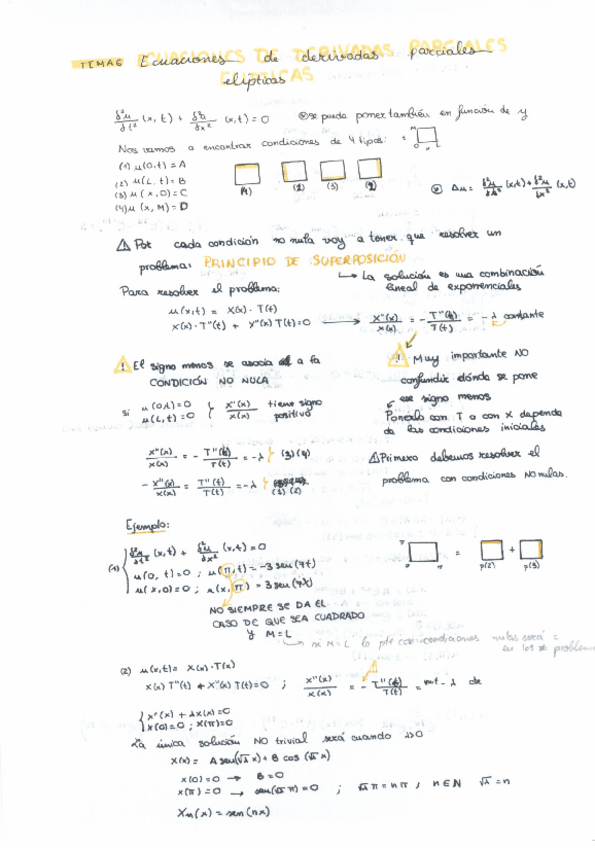 TEMA6 Ecuaciones de derivadas parciales
elípticas
δ²u/δt² (x,t) + δ²u/δx² (x,t) = 0 ⊗ se puede poner también en función de y
Nos vamos a encontrar condiciones de 4 tipos:
(1) u(0,t) = A
(2) u(L,t) = B
(3) u(x,0) = C
(4) u(x,M) = D
(1) (2) (3)
Δu = δ²u/δt² (x,t) + δ²u/δx² (x,t)
⚠ Por cada condición no nula voy a tener que resolver un
problema: PRINCIPIO DE SUPERPOSICIÓN
↳ La solución es una combinación
lineal de exponenciales
Para resolver el problema:
u(x,t) = X(x) · T(t)
X(x) · T''(t) + X''(x) T(t) = 0 → X''(x)/X(x) = - T''(t)/T(t) = -λ constante
⚠ El signo menos se asocia a la
CONDICIÓN NO NULA
⚠ Muy importante NO
confundir dónde se pone
ese signo menos
Ponerlo con T o con X depende
de las condiciones iniciales
si u(0,t)=0
u(L,t)=0 } X''(x)/X(x) tiene signo
positivo
X''(x)/X(x) = - T''(t)/T(t) = -λ } (3)(4)
- X''(x)/X(x) = T''(t)/T(t) = -λ } (1)(2)
⚠ Primero debemos resolver el
problema con condiciones NO nulas.
Ejemplo:
δ²u/δt² (x,t) + δ²u/δx² (x,t) = 0
u(0,t)=0 ; u(π,t) = -3 sen(7t)
u(x,0)=0 ; u(x,π) = 3 sen(7x)
= p(2) + p(3)
NO SIEMPRE SE DA EL
CASO DE QUE SEA CUADRADO
Y M=L
si M=L
(2) u(x,t) = X(x)·T(x)
X(x) T''(t) + X''(x) T(t) = 0 ; X''(x)/X(x) = - T''(t)/T(t) = -λ de
X''(x) + λX(x) = 0
X(0)=0 ; X(π)=0
La única solución NO trivial será cuando λ>0
X(x) = A sen(√λ x) + B cos(√λ x)
X(0)=0 → B=0
X(π)=0 → sen(√λ π)=0 ; √λ π = nπ , n∈N √λ = n
Xn(x) = sen(nx)